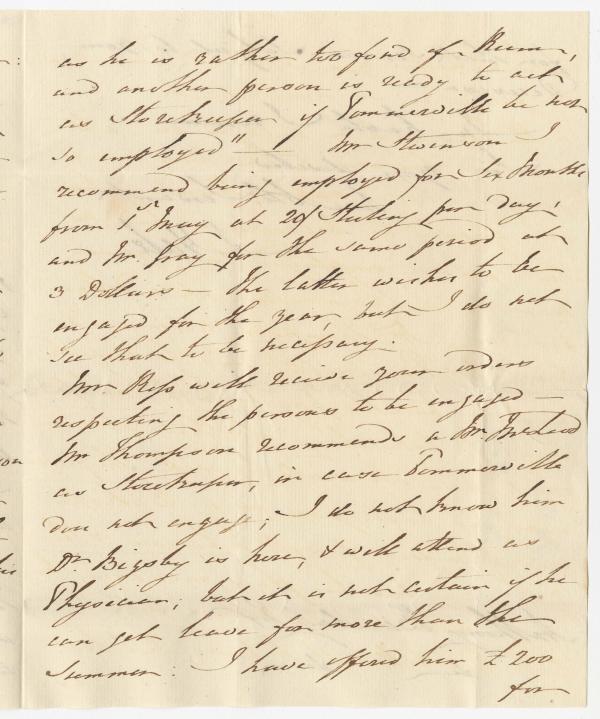 as he is rather too fond of Rum,
and another person is ready to act
as Storekeeper if Tommerville be not
so employed" Mr Stevenson I
recommend being employed for Six Months
from 1st May at 20/ Sterling per day,
and Mr. Gray for the same period at
3 Dollars — the latter wishes to be
engaged for the year, but I do not
see that to be necessary.
Mr. Ross will receive your orders
respecting the persons to be engaged —
Mr Thompson recommends a Mr
as Storekeeper, in case Tommerville
does not engage; I do not know him
Dr Bigsby is here, & will attend as
Physician; but it is not certain if he
can get leave for more than the
Summer. I have offered him £200
for